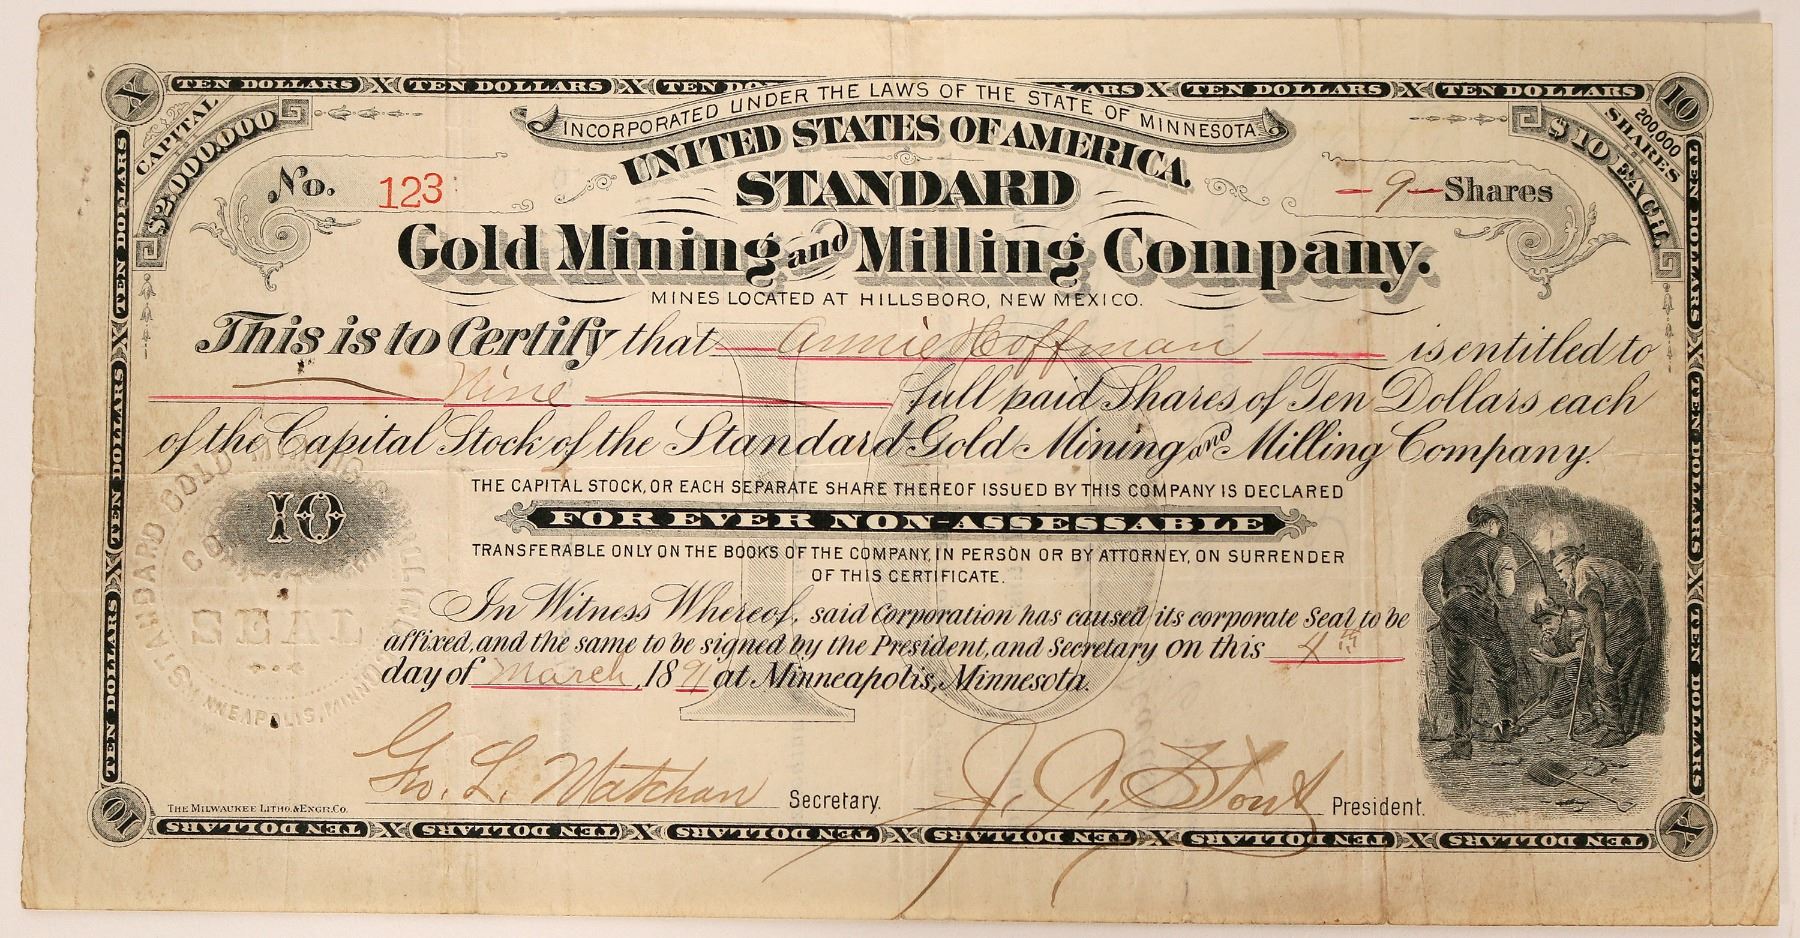 X TEN DOLLARS X TEN DOLLARS X TEN DO LARS X TEN DOLLARS X TEN DOLLARS 10
CAPITAL
$2,000.000
INCORPORATED UNDER THE LAWS OF THE STATE OF MINNESOTA
200,000
SHARES
$10 EACH.
UNITED STATES OF AMERICA.
No. 123
STANDARD
-9- Shares
Gold Mining and Milling Company.
MINES LOCATED AT HILLSBORO, NEW MEXICO.
This is to Certify that Annie Hoffman is entitled to
Nine full paid Shares of Ten Dollars each
of the Capital Stock of the Standard Gold Mining and Milling Company.
THE CAPITAL STOCK, OR EACH SEPARATE SHARE THEREOF ISSUED BY THIS COMPANY IS DECLARED
10
FOR EVER NON-ASSESSABLE
TRANSFERABLE ONLY ON THE BOOKS OF THE COMPANY, IN PERSON OR BY ATTORNEY, ON SURRENDER
OF THIS CERTIFICATE.
STANDARD GOLD MINING
SEAL
MINNEAPOLIS, MINN
In Witness Whereof, said Corporation has caused its corporate Seal to be
affixed, and the same to be signed by the President, and Secretary on this 4th
day of March, 1891 at Minneapolis, Minnesota.
10
Geo. L. Matchan Secretary.
J. C. President.
THE MILWAUKEE LITHO. & ENGR. CO.
TEN DOLLARS X TEN DOLLARS X TEN DOLLARS
TEN DOLLARS X TEN DOLLARS X TEN DOLLARS
10 TEN DOLLARS X TEN DOLLARS X TEN DOLLARS X TEN DOLLARS X TEN DOLLARS X TEN DOLLARS X